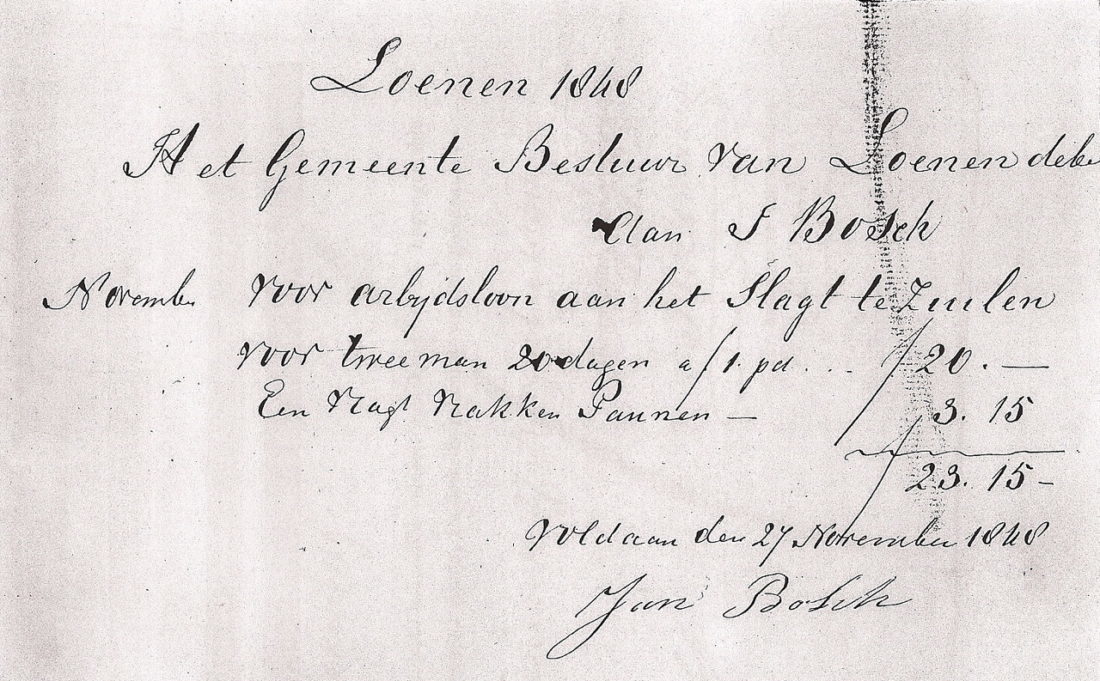 Loenen 1848
Het Gemeente Bestuur van Loenen debe
Aan J Bosch
November voor arbijdsloon aan het Slagt te Zuilen
voor twee man 20 dagen a ƒ 1. pd ... ƒ 20. —
Een Vragt Vrakken Pannen — ƒ 3. 15
ƒ 23. 15 –
Voldaan den 27 November 1848
Jan Bosch